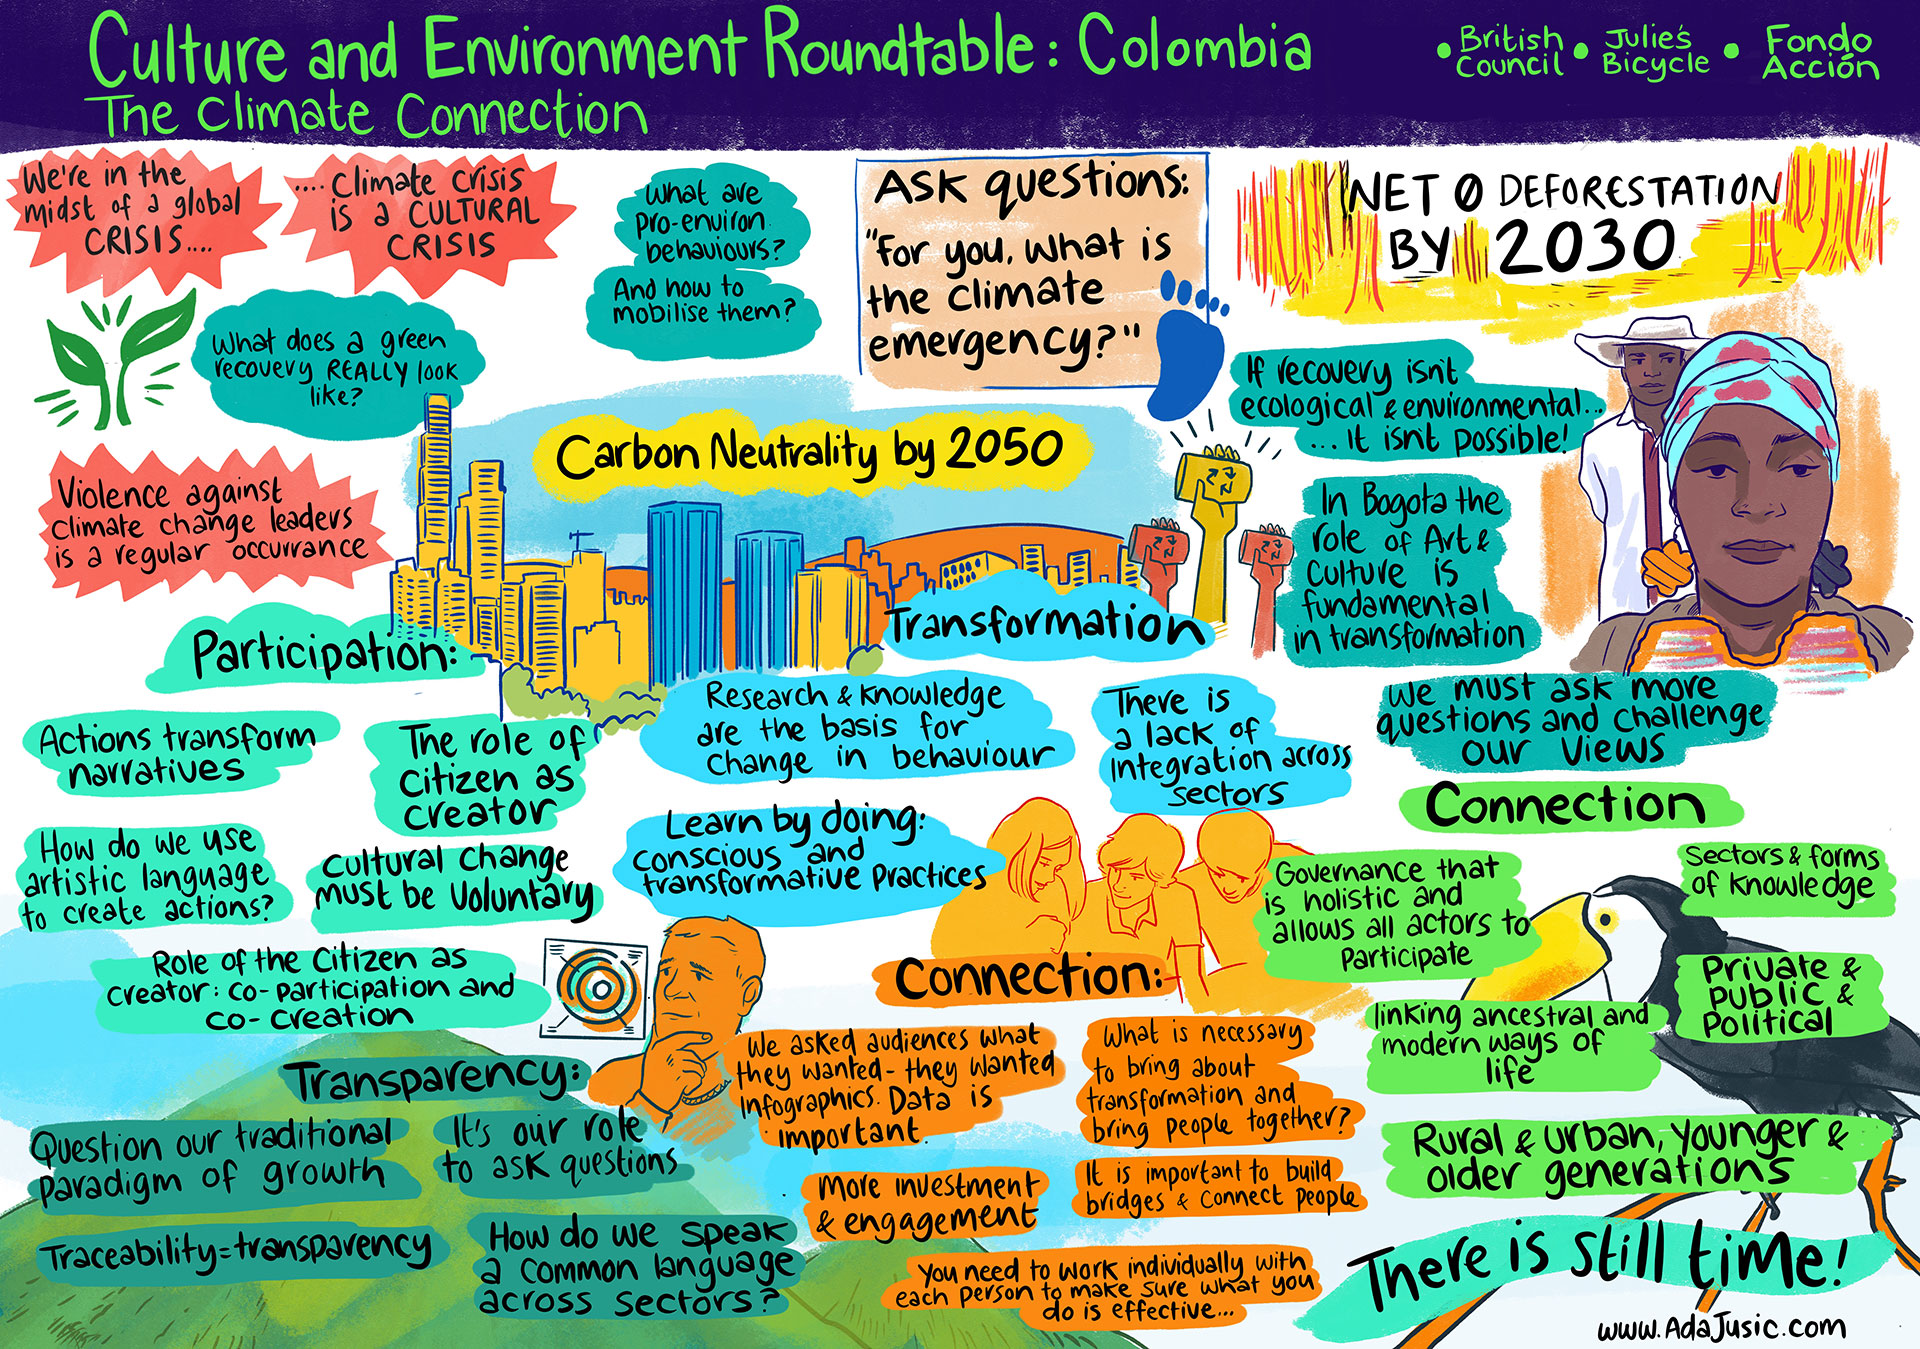 Culture and Environment Roundtable: Colombia
The Climate Connection
• British
Council
• Julie's
Bicycle
• Fondo
Acción
We're in the
midst of a global
CRISIS....
....Climate crisis
is a CULTURAL
CRISIS
What are
pro-environ
behaviours?
And how to
mobilise them?
ASK questions:
"for you, what is
the climate
emergency?"
NET 0 DEFORESTATION
BY 2030
What does a green
recovery REALLY look
like?
If recovery isn't
ecological & environmental...
...it isn't possible!
Carbon Neutrality by 2050
Violence against
climate change leaders
is a regular occurrance
In Bogota the
role of Art &
Culture is
fundamental
in transformation
We must ask more
questions and challenge
our views
Participation:
Actions transform
narratives
The role of
citizen as
creator
How do we use
artistic language
to create actions?
Cultural change
must be voluntary
Role of the citizen as
creator: co-participation and
co-creation
Transformation
Research & knowledge
are the basis for
change in behaviour
There is
a lack of
integration across
sectors
Learn by doing:
conscious and
transformative practices
Connection
Governance that
is holistic and
allows all actors to
participate
Sectors & forms
of knowledge
linking ancestral and
modern ways of
life
Private &
public &
political
Rural & urban, younger &
older generations
Transparency:
Question our traditional
paradigm of growth
It's our role
to ask questions
Traceability=transparency
How do we speak
a common language
across sectors?
Connection:
We asked audiences what
they wanted - they wanted
infographics. Data is
important.
What is necessary
to bring about
transformation and
bring people together?
More investment
& engagement
It is important to build
bridges & connect people
You need to work individually with
each person to make sure what you
do is effective...
There is still time!
www.AdaJusic.com